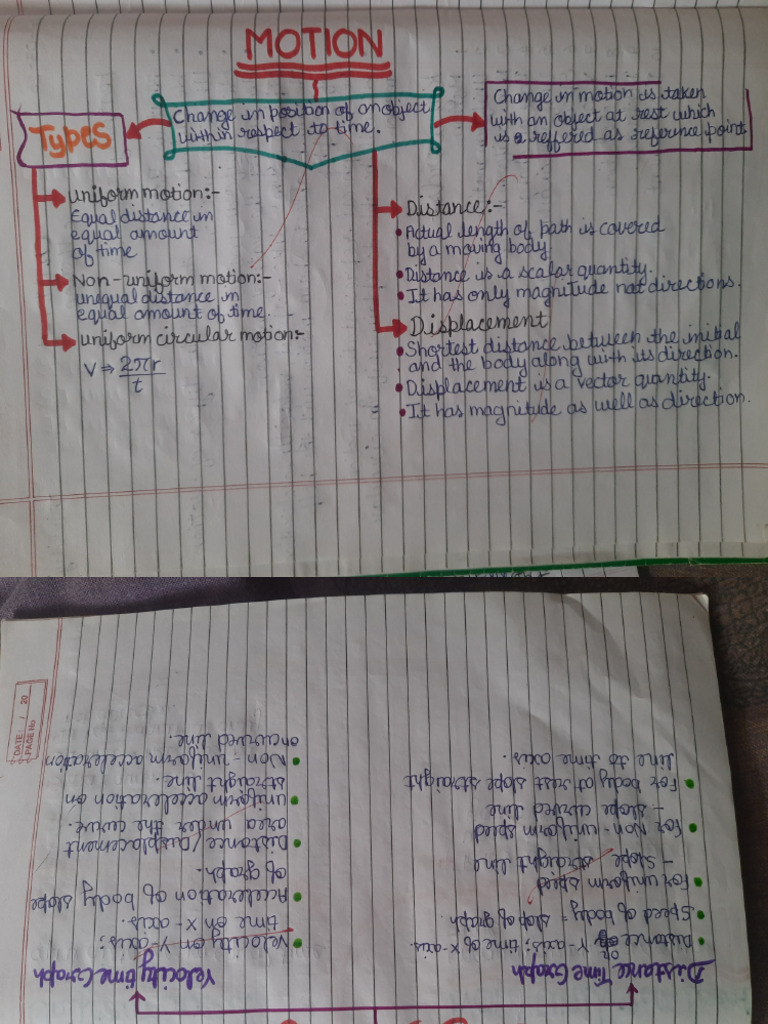 MOTION
Types
Change in position of an object
within respect to time.
Change in motion is taken
with an object at rest which
is a reffered as reference point.
uniform motion:-
Equal distance in
equal amount
of time
Non-uniform motion:-
unequal distance in
equal amount of time.
uniform circular motion:-
V ⇒ 2πr
t
Distance:-
• Actual length of path is covered
by a moving body.
• Distance is a scalar quantity.
• It has only magnitude not directions.
Displacement
• Shortest distance between the initial
and the body along with its direction.
• Displacement is a vector quantity.
• It has magnitude as well as direction.
Distance Time Graph
• Distance on Y-axis; time of X-axis
• Speed of body = slop of graph.
• For uniform speed
- slope straight line
• For Non-uniform speed
- slope curved line
• For body at rest slope straight
line to time axis.
Velocity time Graph
• Velocity on Y-axis;
time on X-axis.
• Acceleration of body slope
of graph.
• Distance/Displacement
area under the curve.
• uniform acceleration on
straight line.
• Non-uniform acceleration
on curved line.
DATE: / / 20
PAGE No